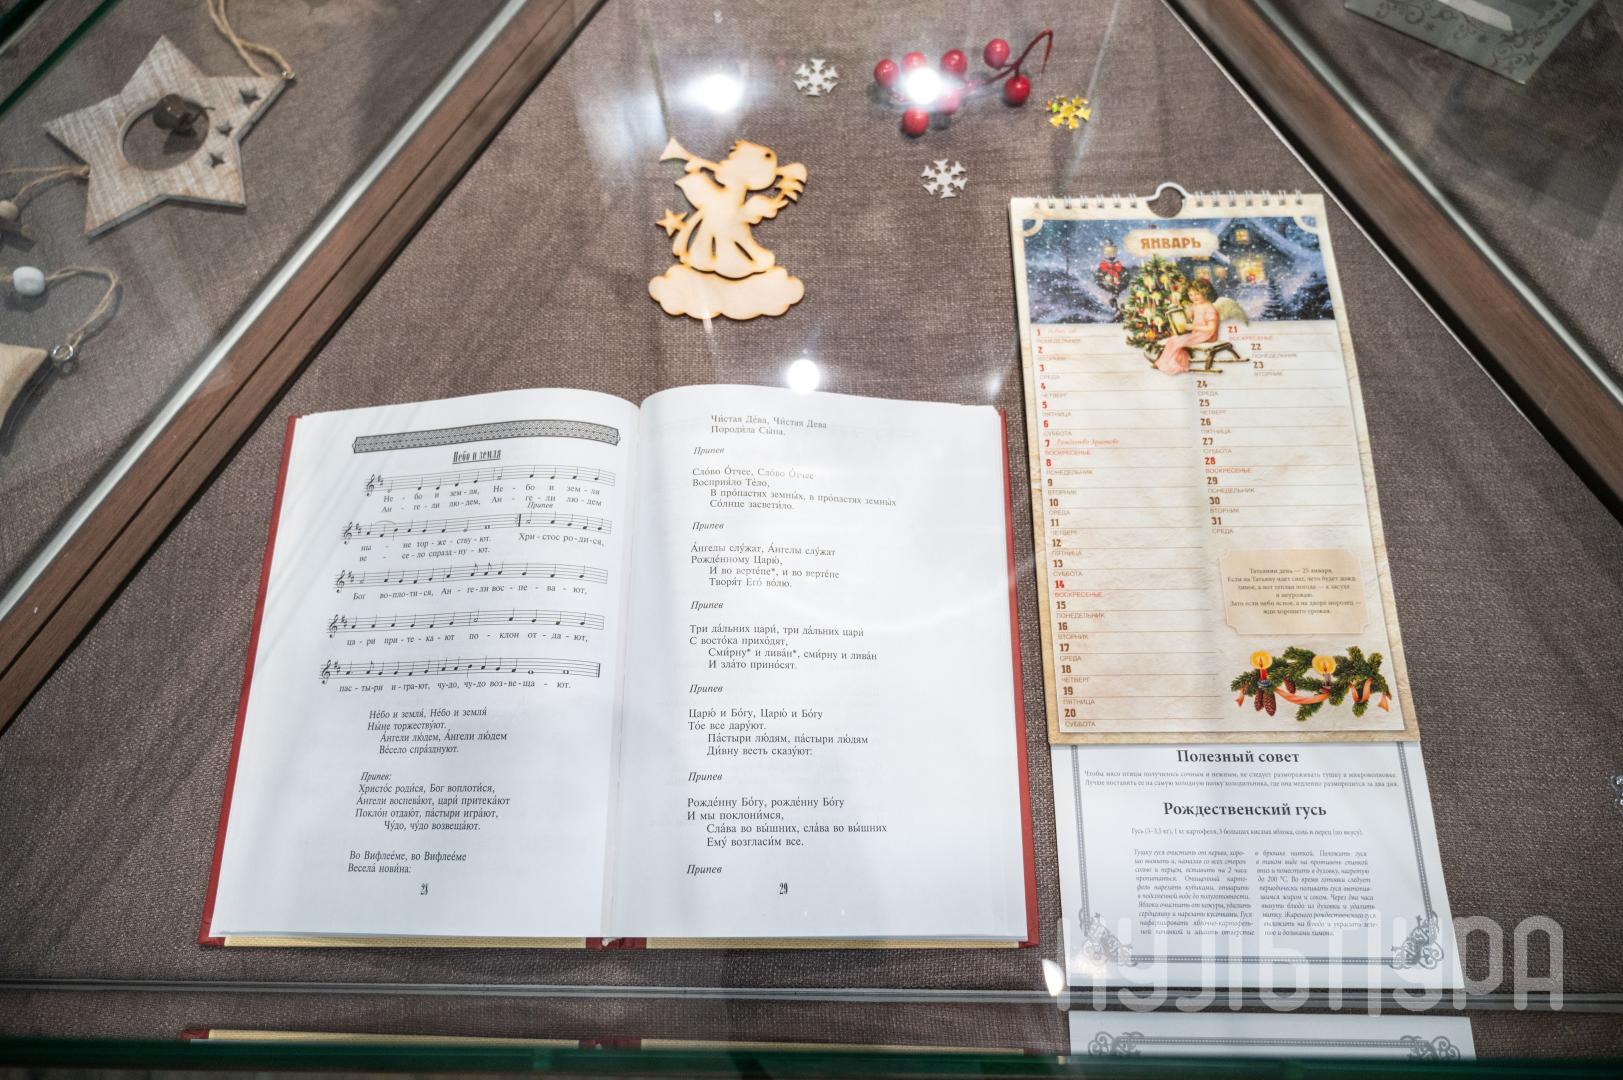 Небо и земля
Не - бо и зем - ля, Не - бо и зем - ля
Ан - ге - ли лю - дем, Ан - ге - ли лю - дем
Припев
ны - не тор - же - ству - ют. Хри - стос ро - ди - ся,
ве - се - ло спразд - ну - ют.
Бог во - пло - ти - ся, Ан - ге - ли вос - пе - ва - ют,
ца - ри при - те - ка - ют по - клон от - да - ют,
пас - ты - ри и - гра - ют, чу - до, чу - до воз - ве - ща - ют.
Не́бо и земля́, Не́бо и земля́
Ны́не торжеству́ют.
А́нгели лю́дем, А́нгели лю́дем
Ве́село спра́зднуют.
Припев:
Христо́с роди́ся, Бог воплоти́ся,
А́нгели воспева́ют, цари́ притека́ют
Покло́н отдаю́т, па́стыри игра́ют,
Чу́до, чу́до возвеща́ют.
Во Вифлее́ме, во Вифлее́ме
Весела́ нови́на:
28
Чи́стая Де́ва, Чи́стая Дева
Породи́ла Сы́на.
Припев
Сло́во О́тчее, Сло́во О́тчее
Восприя́ло Те́ло,
В про́пастях земны́х, в про́пастях земны́х
Со́лнце засвети́ло.
Припев
А́нгелы слу́жат, А́нгелы слу́жат
Рожде́нному Царю́,
И во верте́пе*, и во верте́пе
Творя́т Его́ во́лю.
Припев
Три да́льних цари́, три да́льних цари́
С восто́ка прихо́дят,
Сми́рну* и лива́н*, сми́рну и лива́н
И зла́то прино́сят.
Припев
Царю́ и Бо́гу, Царю́ и Бо́гу
То́е все дару́ют.
Па́стыри лю́дям, па́стыри лю́дям
Ди́вну весть сказу́ют:
Припев
Рожде́нну Бо́гу, рожде́нну Бо́гу
И мы поклони́мся,
Сла́ва во вы́шних, сла́ва во вы́шних
Ему́ возгласи́м все.
Припев
29
ЯНВАРЬ
1
ПОНЕДЕЛЬНИК
2
ВТОРНИК
3
СРЕДА
4
ЧЕТВЕРГ
5
ПЯТНИЦА
6
СУББОТА
7 Рождество Христово
ВОСКРЕСЕНЬЕ
8
ПОНЕДЕЛЬНИК
9
ВТОРНИК
10
СРЕДА
11
ЧЕТВЕРГ
12
ПЯТНИЦА
13
СУББОТА
14
ВОСКРЕСЕНЬЕ
15
ПОНЕДЕЛЬНИК
16
ВТОРНИК
17
СРЕДА
18
ЧЕТВЕРГ
19
ПЯТНИЦА
20
СУББОТА
21
ВОСКРЕСЕНЬЕ
22
ПОНЕДЕЛЬНИК
23
ВТОРНИК
24
СРЕДА
25
ЧЕТВЕРГ
26
ПЯТНИЦА
27
СУББОТА
28
ВОСКРЕСЕНЬЕ
29
ПОНЕДЕЛЬНИК
30
ВТОРНИК
31
СРЕДА
Татьянин день — 25 января.
Если на Татьяну идет снег, лето будет дожд-
ливое, а вот теплая погода — к засухе
и неурожаю.
Зато если небо ясное, а на дворе морозец —
жди хорошего урожая.
Полезный совет
Чтобы мясо птицы получилось сочным и нежным, не следует размораживать тушку в микроволновке.
Лучше поставить ее на самую холодную полку холодильника, где она медленно разморозится за два дня.
Рождественский гусь
Гусь (3–3,5 кг), 1 кг картофеля, 3 больших кислых яблока, соль и перец (по вкусу).
Тушку гуся очистить от перьев, хоро-
шо вымыть и, натерев со всех сторон
солью и перцем, оставить на 2 часа
пропитаться. Очищенный карто-
фель нарезать кубиками, отварить
в подсоленной воде до полуготовности.
Яблоки очистить от кожуры, удалить
сердцевину и нарезать кусочками. Гуся
нафаршировать яблочно-картофель-
ной начинкой и зашить отверстие
в брюшке ниткой. Положить гуся
в таком виде на противень спинкой
вниз и поместить в духовку, нагретую
до 200 °С. Во время готовки следует
периодически поливать гуся вытопив-
шимся жиром и соком. Через два часа
вынуть блюдо из духовки и удалить
нитку. Жареного рождественского гуся
выложить на блюдо и украсить зеле-
нью и дольками лимона.
КУЛЬТУРА